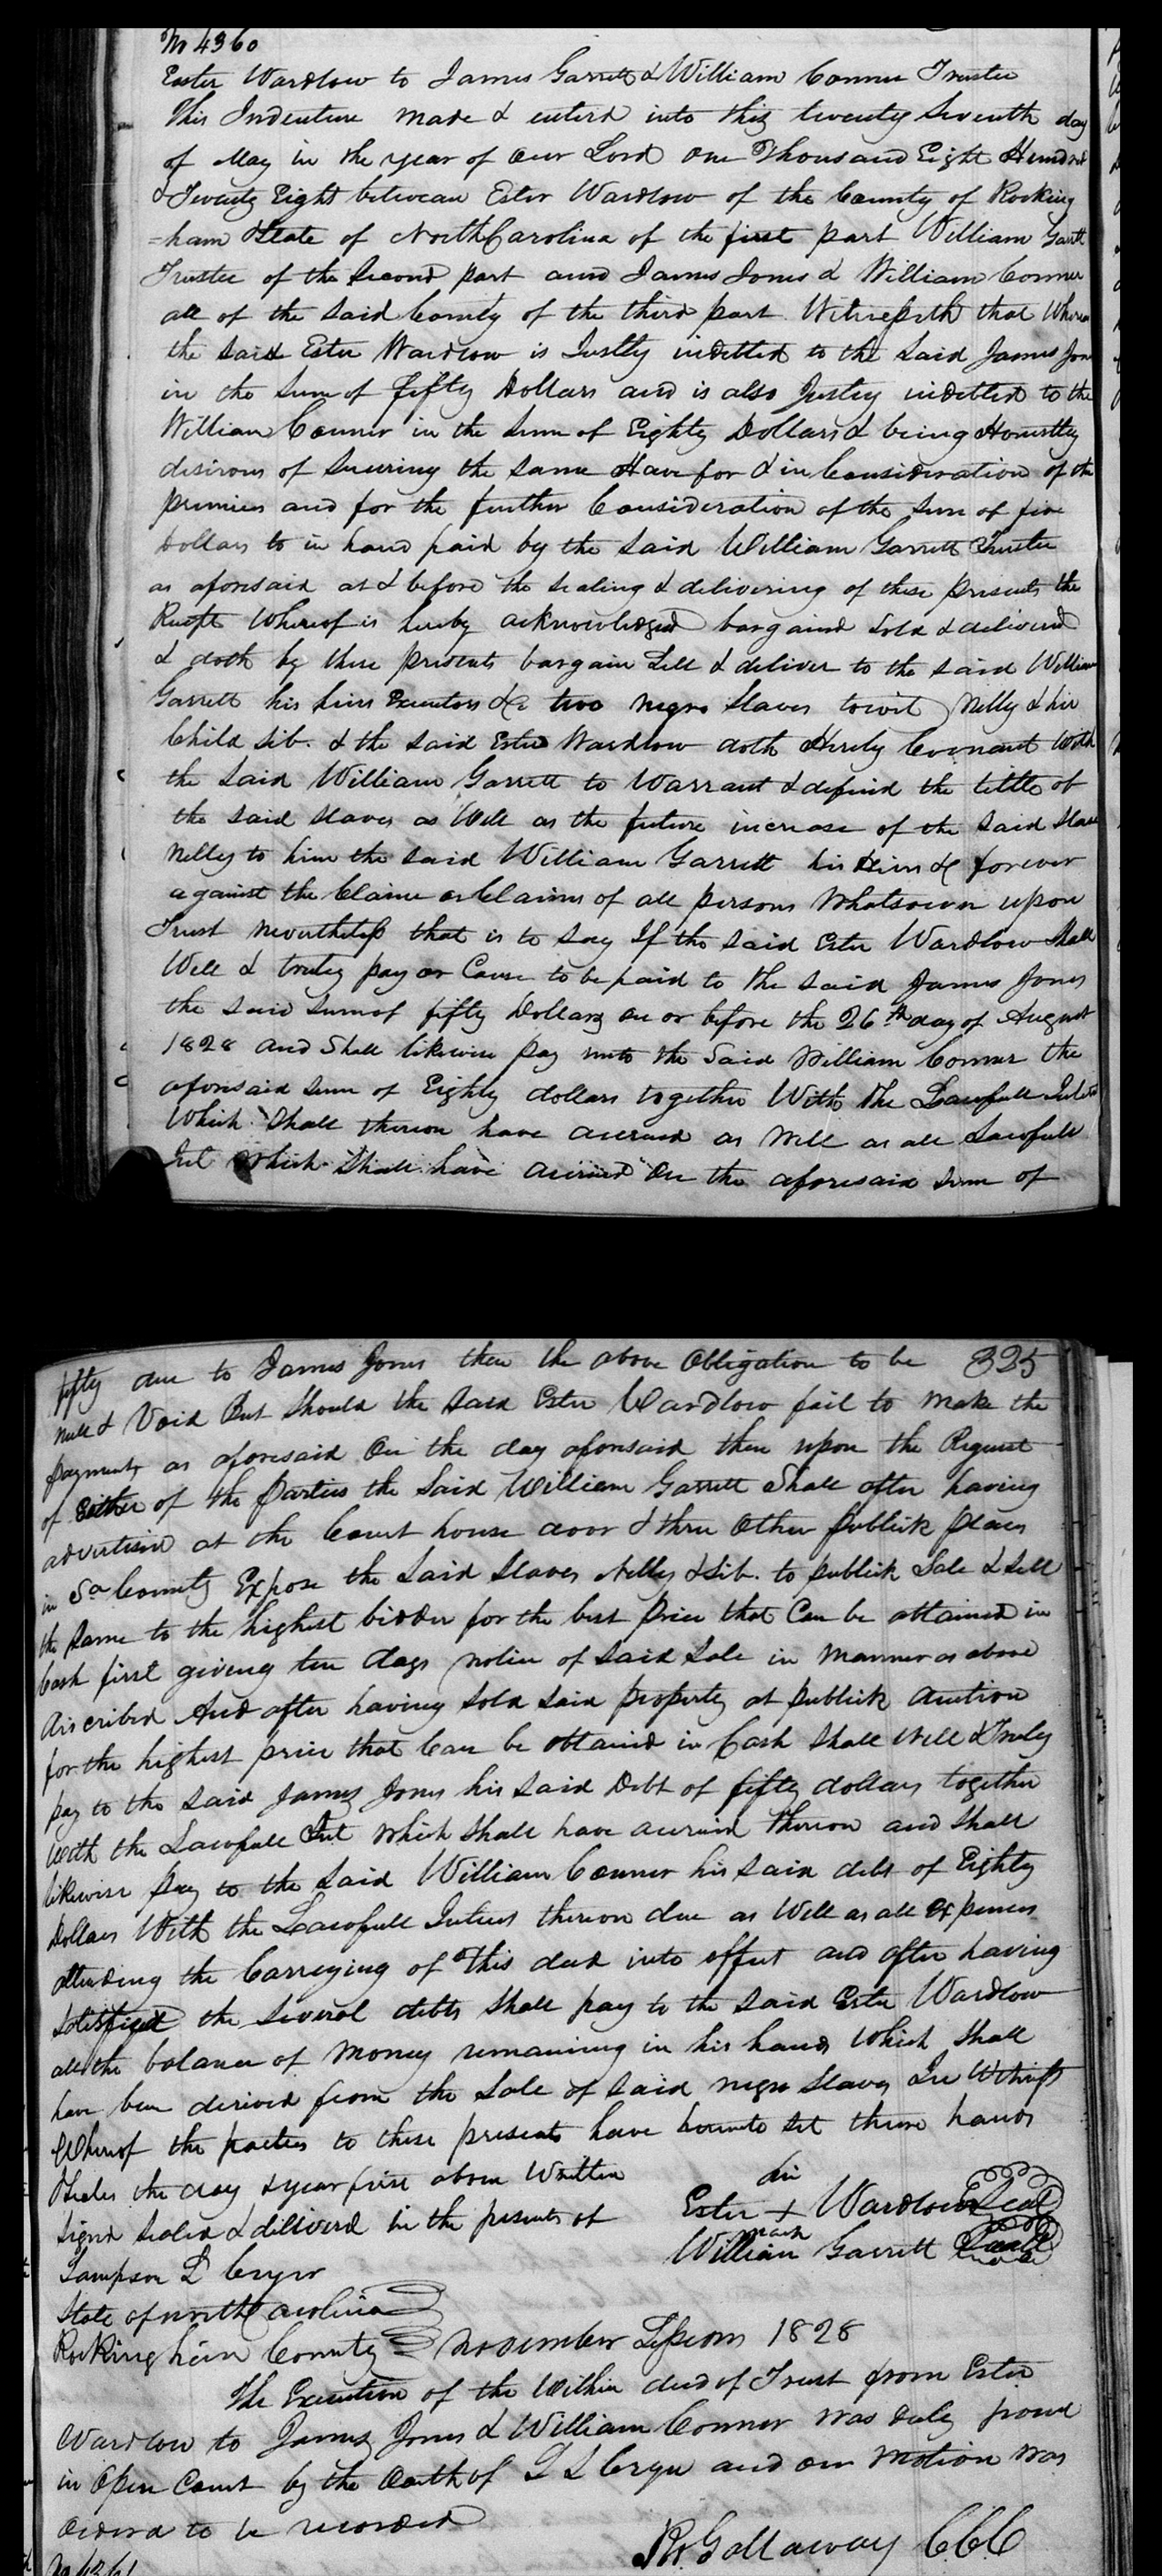 No 4360
Ester Wardlow to James Garrett & William Conner Trustee
This Indenture made & enterd into this twenty Seventh day
of May in the year of our Lord one Thousand Eight Hundred
& Twenty Eight between Ester Wardlow of the County of Rocking
=ham State of North Carolina of the first part William Garrett
Trustee of the Second part and James Jones & William Conner
all of the said County of the third part Witnesseth that Whereas
the said Ester Wardlow is Justly indetted to the said James Jones
in the sum of fifty Dollars and is also Justly indetted to the
William Conner in the sum of Eighty Dollars & being Honestly
desirous of securing the same Have for & in Consideration of the
premises and for the further Consideration of the sum of five
Dollars to in hand paid by the said William Garrett Trustee
as aforesaid at & before the sealing & delivering of these presents the
Recept Whereof is hereby acknowledged bargaind Sold & deliverd
& doth by these presents bargain Sell & deliver to the said William
Garrett his heirs Executors &c two negro Slaves towit Nelly & her
Child Sib. & the said Ester Wardlow doth Hereby Covenant With
the said William Garrett to Warrant & defend the title of
the said slaves as Well as the future increase of the said Slave
Nelly to him the said William Garrett his Heirs &c forever
against the Claim or Claims of all persons Whatsoever upon
Trust nevertheless that is to say If the said Ester Wardlow Shall
Well & truly pay or Cause to be paid to the said James Jones
the said sum of fifty Dollars on or before the 26th day of August
1828 and Shall likewise pay unto the Said William Conner the
aforesaid sum of Eighty dollars together With the Lawfull Interest
Which Shall thereon have accrued as well as all Lawfull
Int Which Shall have accrued on the aforesaid sum of
fifty due to James Jones then the above Obligation to be 325
null & Void But Should the said Ester Wardlow fail to make the
payments as aforesaid on the day aforesaid then upon the Request
of either of the Parties the Said William Garrett Shall after having
advertised at the Court house door & three Other publick places
in Sd County Expose the Said Slaves Nelly & Sib. to publick Sale & Sell
the same to the highest bidder for the best price that Can be obtained in
Cash first giving ten days notice of said Sale in manner as above
discribed And after having sold said property at publick auction
for the highest price that Can be obtaind in Cash Shall Well & Truly
pay to the said James Jones his said Debt of fifty dollars together
With the Lawfull Int Which Shall have accrued thereon and Shall
likewise pay to the said William Conner his said debt of Eighty
Dollars With the Lawfull Interest thereon due as Well as all expences
attending the Carreying of This deed into effect and after having
satisfyed the several debts shall pay to the said Ester Wardlow
all the balance of money remaining in his hands Which Shall
have been derived from the sale of said negro slaves In Witness
Whereof the parties to these presents have hereunto set there hands
& Seales the day & year first above Written
Signd Sealed & dilliverd in the presents of
Sampson L Cryer
her
Ester + Wardlow Seal
mark
William Garrett Seal
State of North Carolina
Rockingham County November Session 1828
The Execution of the Within deed of Trust from Ester
Wardlow to James Jones & William Conner was duly proved
in Open Court by the Oath of S L Cryer and on Motion was
Orderd to be recorded
Ro Gallaway CCC